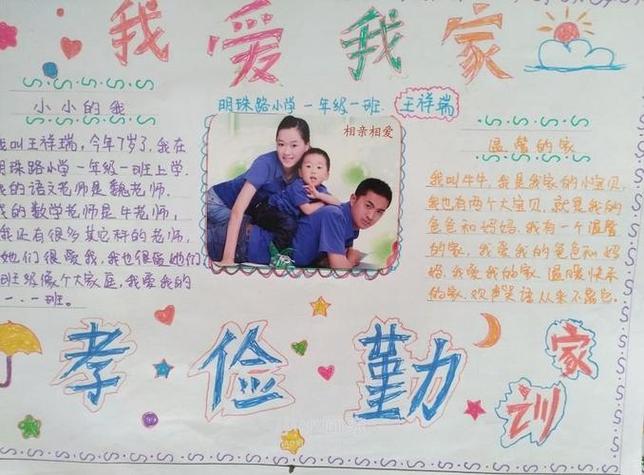 我爱我家
明珠路小学一年级一班 王祥瑞
小小的我
我叫王祥瑞,今年7岁了,我在
明珠路小学一年级一班上学.
我的语文老师是魏老师,
我的数学老师是牛老师,
我还有很多其它科的老师,
她们很爱我,我也很爱她们
班级像个大家庭,我爱我的
一.一班。
相亲相爱
温馨的家
我叫牛牛,我是我家的小宝贝,
我也有两个大宝贝,就是我的
爸爸和妈妈,我有一个温馨
的家,我爱我的爸爸和妈
妈,我爱我的家.温暖快乐
的家,欢声笑语从来不
孝 俭 勤
家训